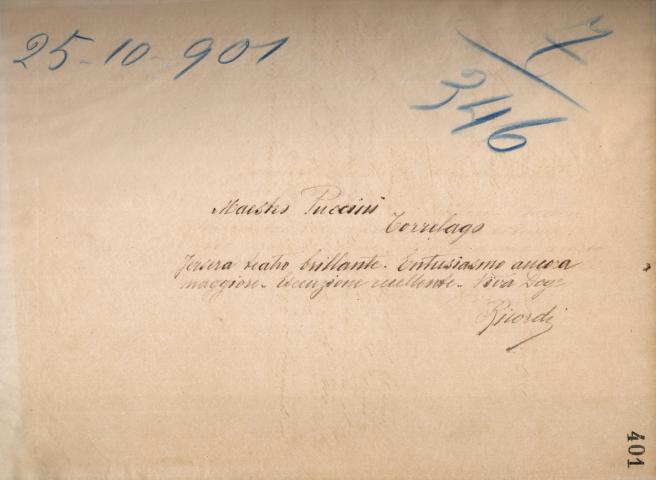 25-10-901
7/346
Maestro Puccini
Torrelago
Jersera teatro brillante. Entusiasmo ancora
maggiore. Esecuzione eccellente. Viva Doge
Ricordi
401